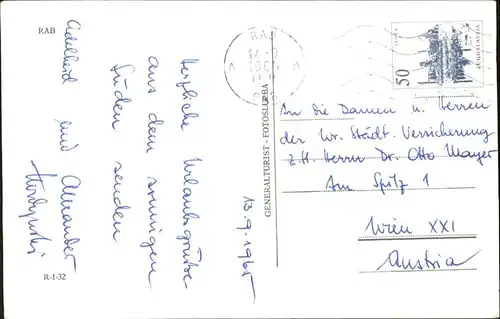 RAB
Herzliche Urlaubsgrüße
aus dem sonnigen
Süden senden
Adelheid und Alexander
13.9.1965
R-1-32
GENERALTURIST - FOTOSLUŽBA
RAB
50
JUGOSLAVIJA
An die Damen u. Herren
der Wr. Städt. Versicherung
z.H. Herrn Dr. Otto Mayer
Am Spitz 1
Wien XXI
Austria